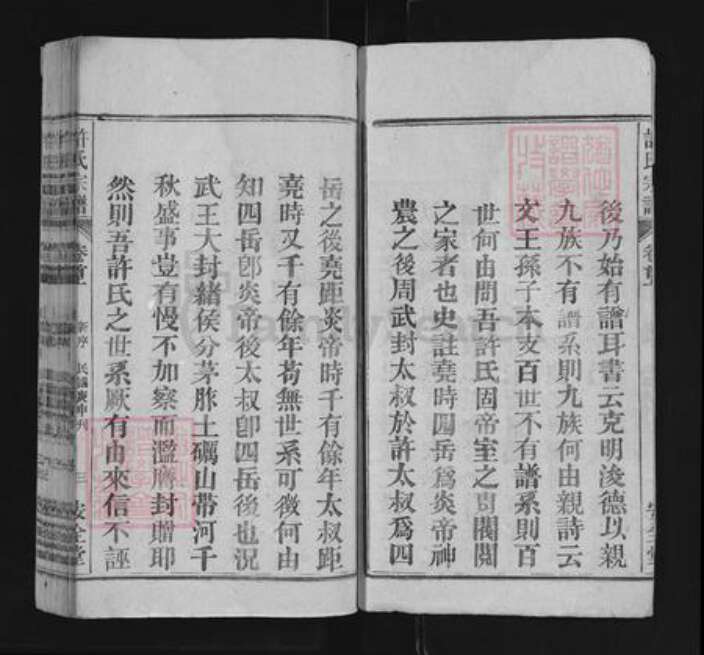 許氏宗譜 卷首
後乃始有譜耳書云克明浚德以親
九族不有譜系則九族何由親詩云
文王孫子本支百世不有譜系則百
世何由問吾許氏固帝室之胄閥閱
之家者也史註堯時四岳爲炎帝神
農之後周武封太叔於許太叔爲四
岳之後堯距炎帝時千有餘年太叔距
堯時又千有餘年苟無世系可徵何由
知四岳卽炎帝後太叔卽四岳後也況
武王大封諸侯分茅胙土礪山帶河千
秋盛事豈有慢不加察而濫膺封贈耶
然則吾許氏之世系厥有由來信不誣
許氏宗譜 卷首 民國庚申刊 三 全堂
FamilySearch